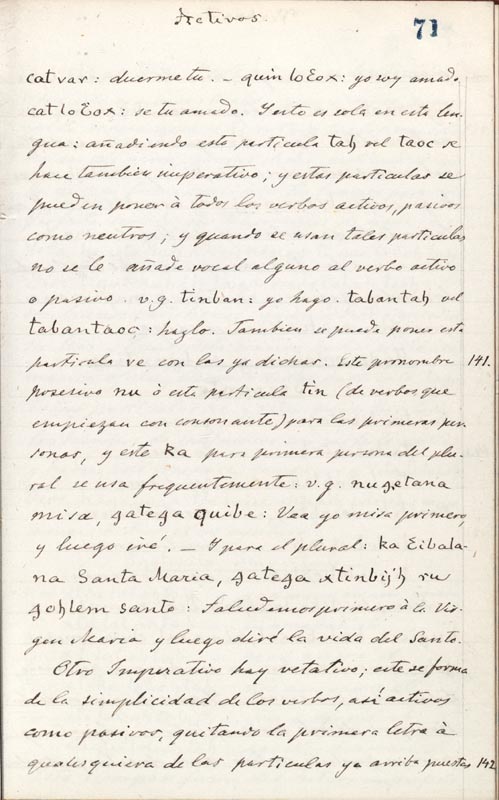 Activos.
71
cat var: duerme tu. – quin loɛox: yo soy amado
cat loɛox: se tu amado. Y esto es sola en esta len-
gua: añadiendo esta particula tah vel taoc se
hace tambien imperativo; y estas particulas se
pueden poner à todos los verbos activos, pasivos
como neutros; y quando se usan tales particulas
no se le añade vocal alguno al verbo activo
o pasivo. v.g. tinban: yo hago. tabantah vel
tabantaoc: hazlo. Tambien se puede poner esta
particula ve con las ya dichas. Este pronombre 141.
posesivo nu ò esta particula tin (de verbos que
empiezan con consonante) para las primeras per-
sonas, y este ka para primera persona del plu-
ral se usa frequentemente: v.g. nuꜫetana
misa, ꜫateꜫa quibe: Vea yo misa primero,
y luego iré. – Y para el plural: ka ɛibala-
na Santa Maria, ꜫateꜫa xtinbijh ru
ꜫohlem santo: Saludemos primero à la Vir-
gen Maria y luego diré la vida del Santo.
Otro Imperativo hay vetativo; este se forma
de la simplicidad de los verbos, asi activos
como pasivos, quitando la primera letra à
qualesquiera de las particulas ya arriba puestas 142